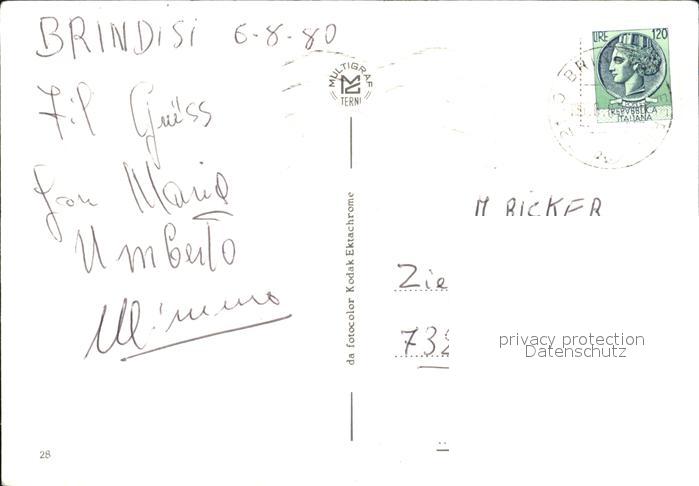 BRINDISI 6-8-80
Fil Grüss
Gian Maria
Umberto
Mimmo
28
MULTIGRAF
TERNI
da fotocolor Kodak Ektachrome
LIRE 120
REPVBBLICA
ITALIANA
M RICKER
Zie
732
privacy protection
Datenschutz